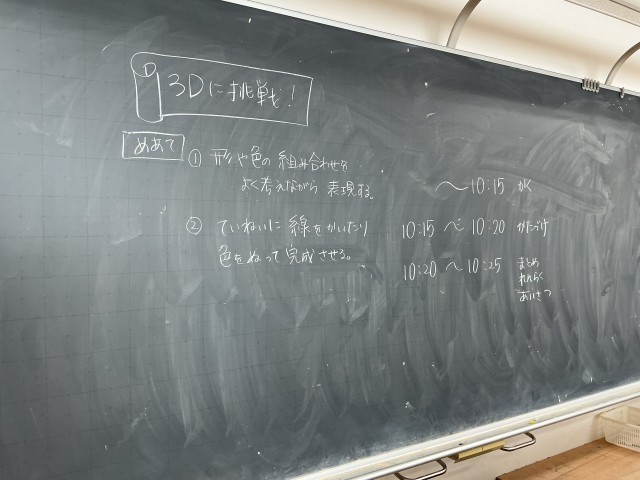 3Dに挑戦！
めあて
① 形や色の組み合わせを
よく考えながら 表現する。
② ていねいに 線をかいたり
色をぬって 完成させる。
〜10:15 かく
10:15 〜 10:20 かたづけ
10:20 〜 10:25 まとめ
れんらく
あいさつ